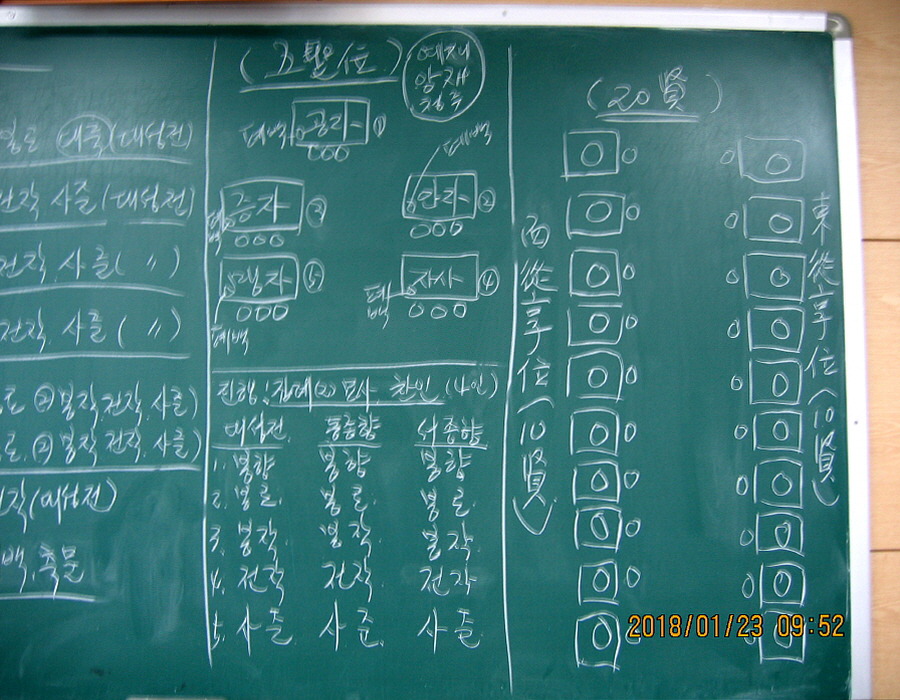 일로 대축(대성전)
전작 사준(대성전)
전작, 사준( 〃 )
전작, 사준( 〃 )
② 봉작, 전작, 사준)
② 봉작 전작, 사준)
작(대성전)
백, 축문
(五聖位)
예제
앙재
청주
폐백 공자 ①
폐백
증자 ③
안자 ②
맹자 ⑤
폐백
자사 ④
진행 : 집례(2) 묘사 찬인 (4인)
대성전 동종향 서종향
1. 봉향 봉향 봉향
2. 봉로. 봉로. 봉로
3. 봉작. 봉작. 봉작
4. 전작 전작 전작
5. 사준. 사준. 사준.
(20賢)
西從享位(10賢)
東從享位(10賢)
2018/01/23 09:52